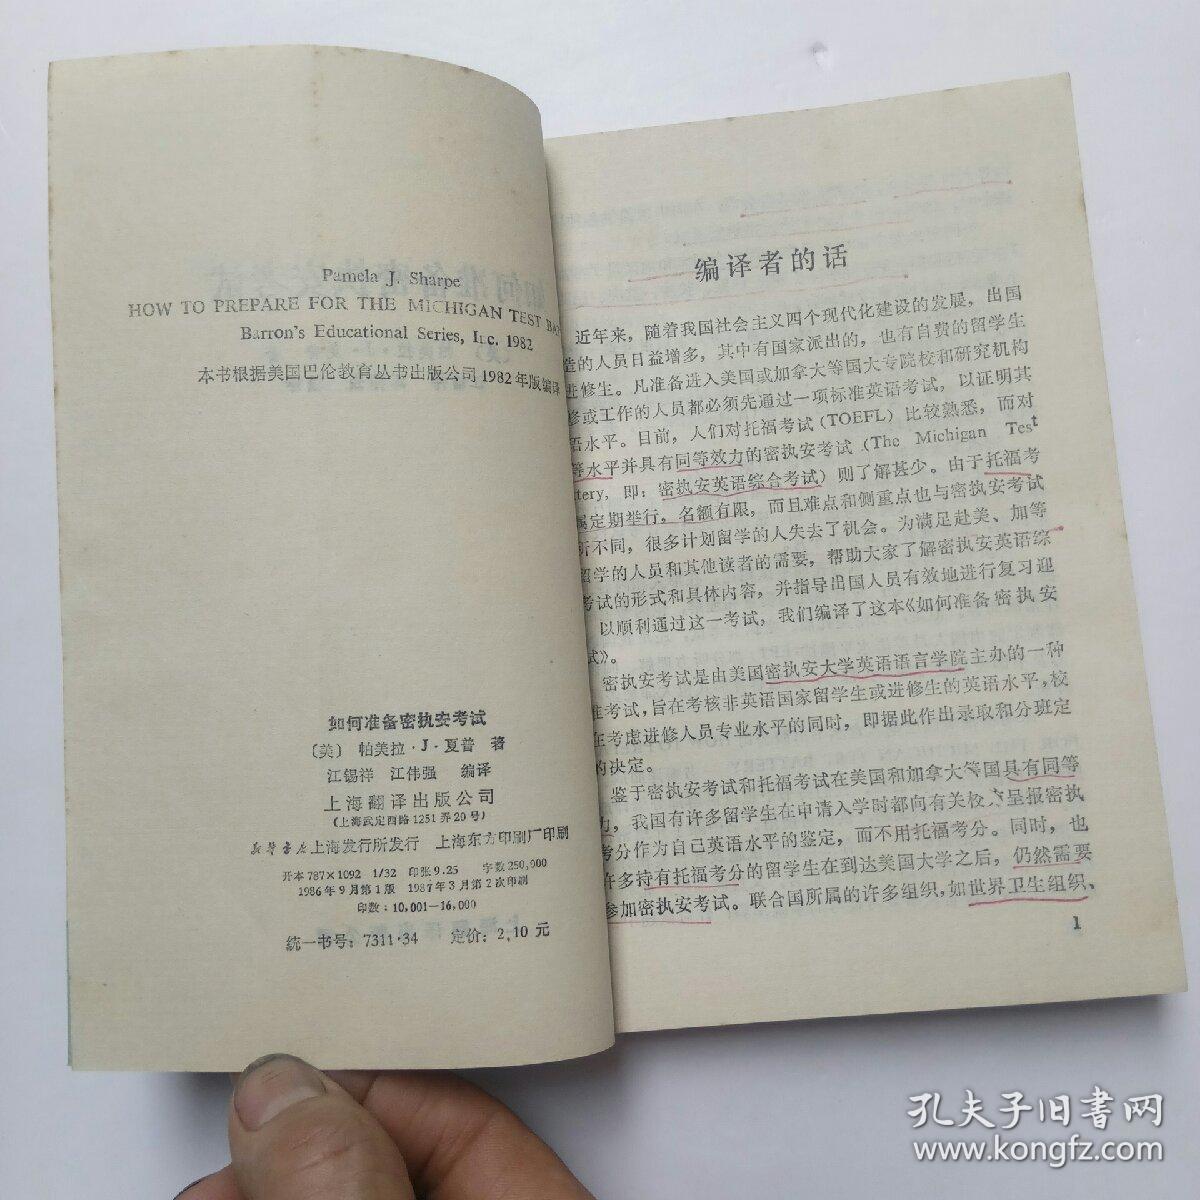 Pamela J. Sharpe
HOW TO PREPARE FOR THE MICHIGAN TEST
Barron's Educational Series, Inc. 1982
本书根据美国巴伦教育丛书出版公司1982年版编译
如何准备密执安考试
〔美〕 帕美拉·J·夏普 著
江锡祥 江伟强 编译
上海翻译出版公司
(上海武定西路1251弄20号)
新华书店上海发行所发行 上海东方印刷厂印刷
开本787×1092 1/32 印张9.25 字数250,000
1986年9月第1版 1987年3月第2次印刷
印数：10,001—16,000
统一书号：7311·34 定价：2,10元
编译者的话
近年来，随着我国社会主义四个现代化建设的发展，出国
造的人员日益增多，其中有国家派出的，也有自费的留学生
进修生。凡准备进入美国或加拿大等国大专院校和研究机构
修或工作的人员都必须先通过一项标准英语考试，以证明其
语水平。目前，人们对托福考试(TOEFL)比较熟悉，而对
等水平并具有同等效力的密执安考试(The Michigan Test
ttery, 即：密执安英语综合考试)则了解甚少。由于托福考
属定期举行，名额有限，而且难点和侧重点也与密执安考试
所不同，很多计划留学的人失去了机会。为满足赴美、加等
留学的人员和其他读者的需要，帮助大家了解密执安英语综
考试的形式和具体内容，并指导出国人员有效地进行复习迎
以顺利通过这一考试，我们编译了这本《如何准备密执安
试》。
密执安考试是由美国密执安大学英语语言学院主办的一种
准考试，旨在考核非英语国家留学生或进修生的英语水平，校
在考虑进修人员专业水平的同时，即据此作出录取和分班定
的决定。
鉴于密执安考试和托福考试在美国和加拿大等国具有同等
力，我国有许多留学生在申请入学时都向有关校方呈报密执
考分作为自己英语水平的鉴定，而不用托福考分。同时，也
许多持有托福考分的留学生在到达美国大学之后，仍然需要
参加密执安考试。联合国所属的许多组织，如世界卫生组织、
1
孔夫子旧书网
www.kongfz.com